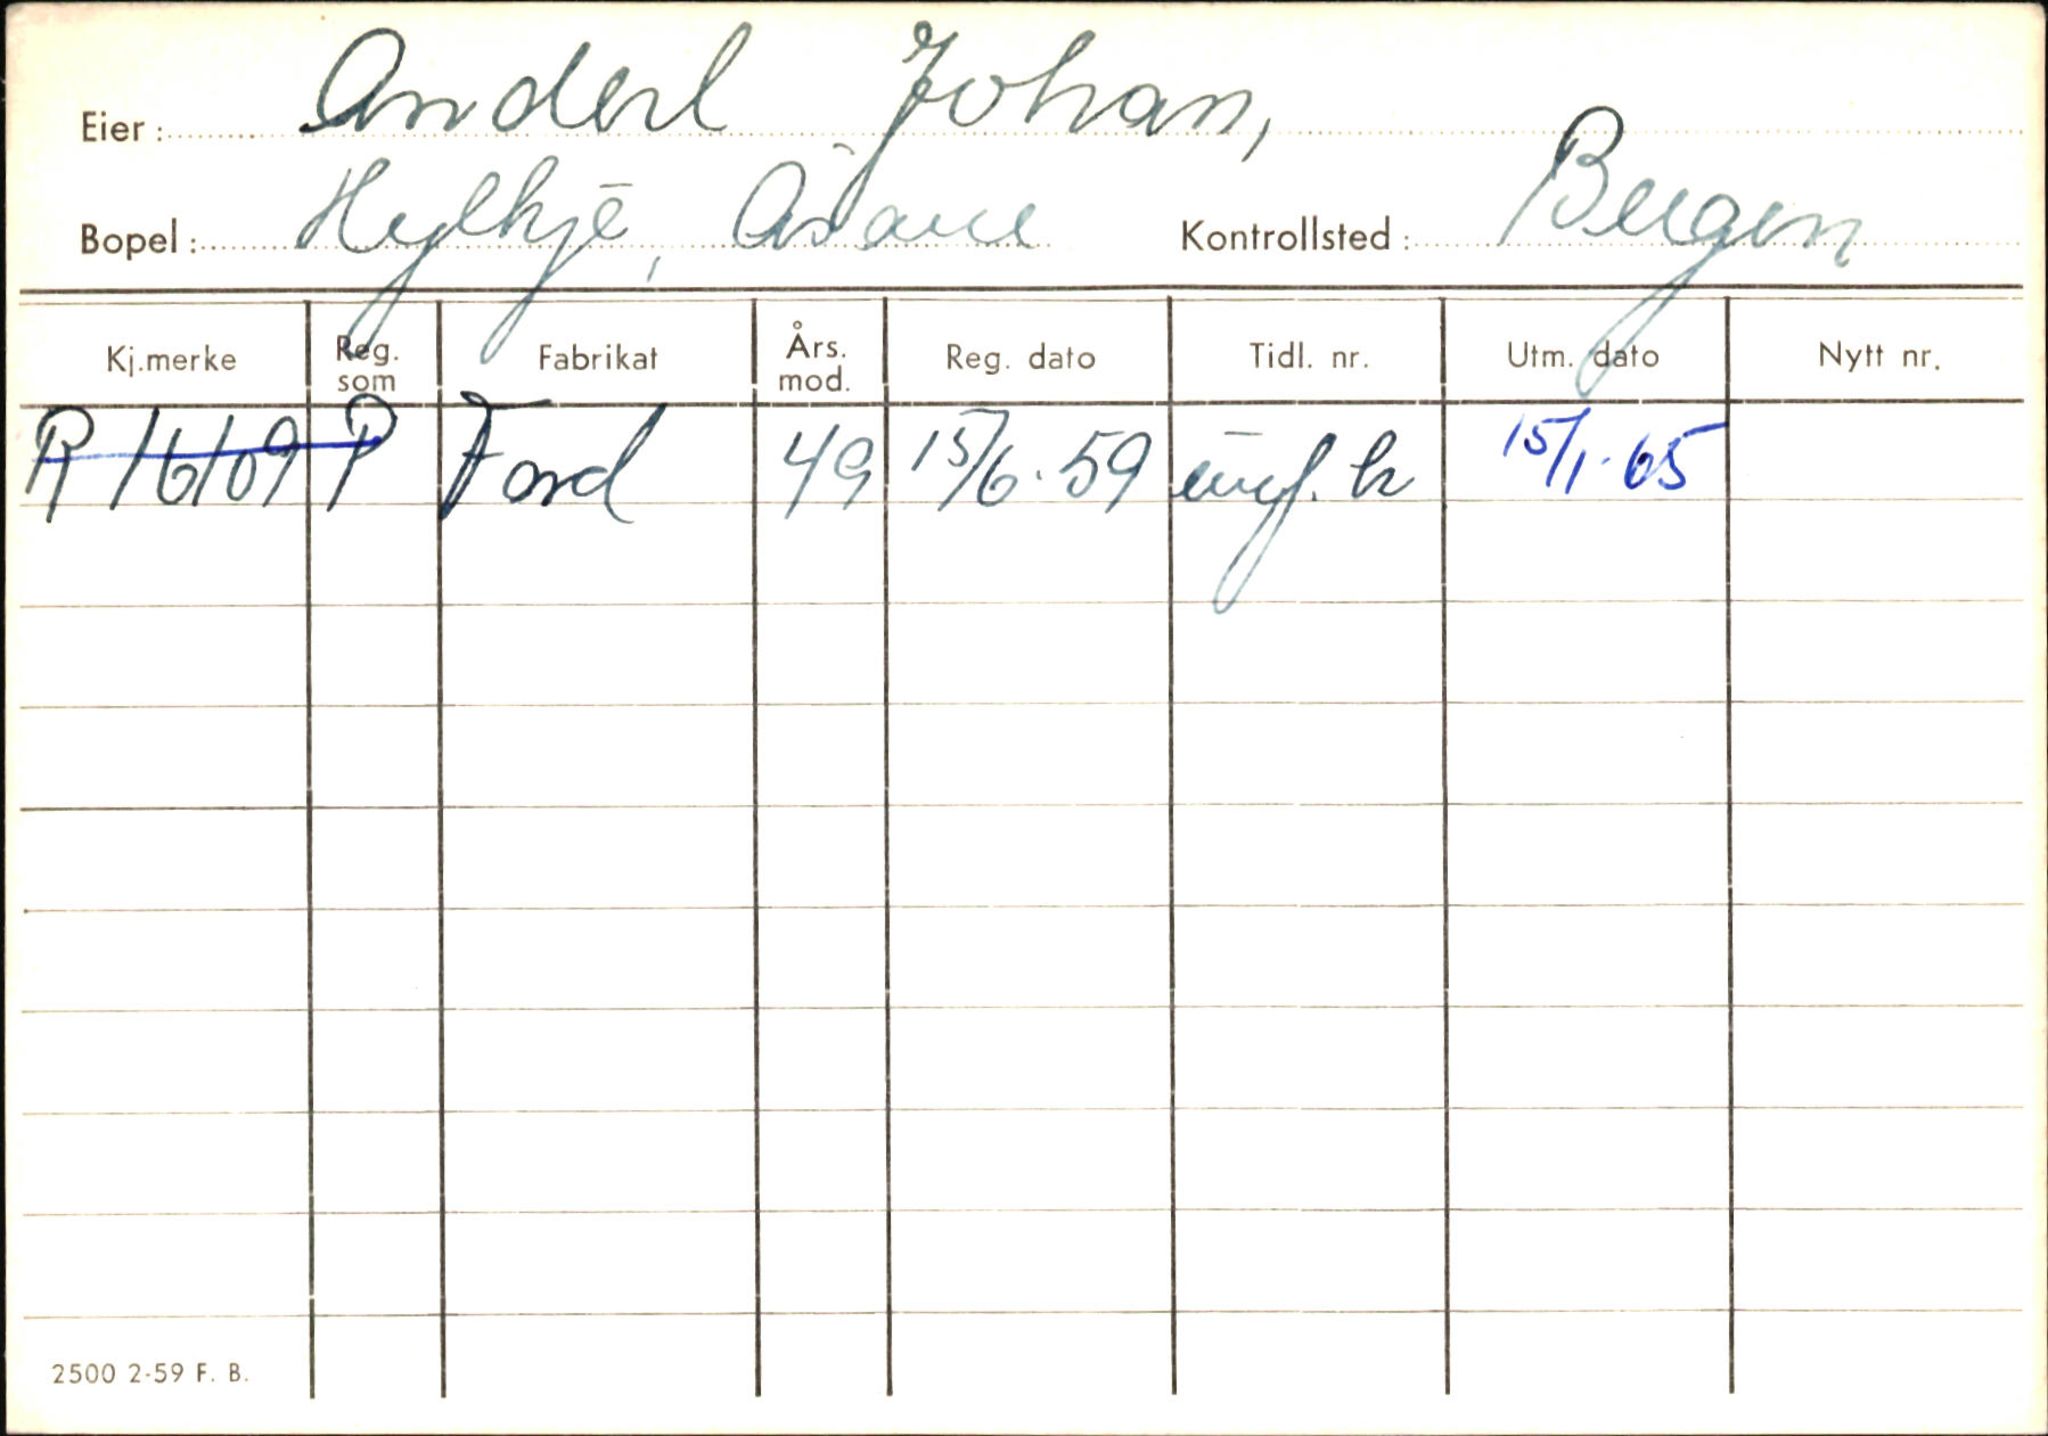 Eier: Anderl Johan,
Bopel: Hylkje, Åsane Kontrollsted: Bergen
Kj.merke Reg. som Fabrikat Års. mod. Reg. dato Tidl. nr. Utm. dato Nytt nr.
R 16109 P Ford 49 15/6.59 15/1.65
2500 2-59 F. B.